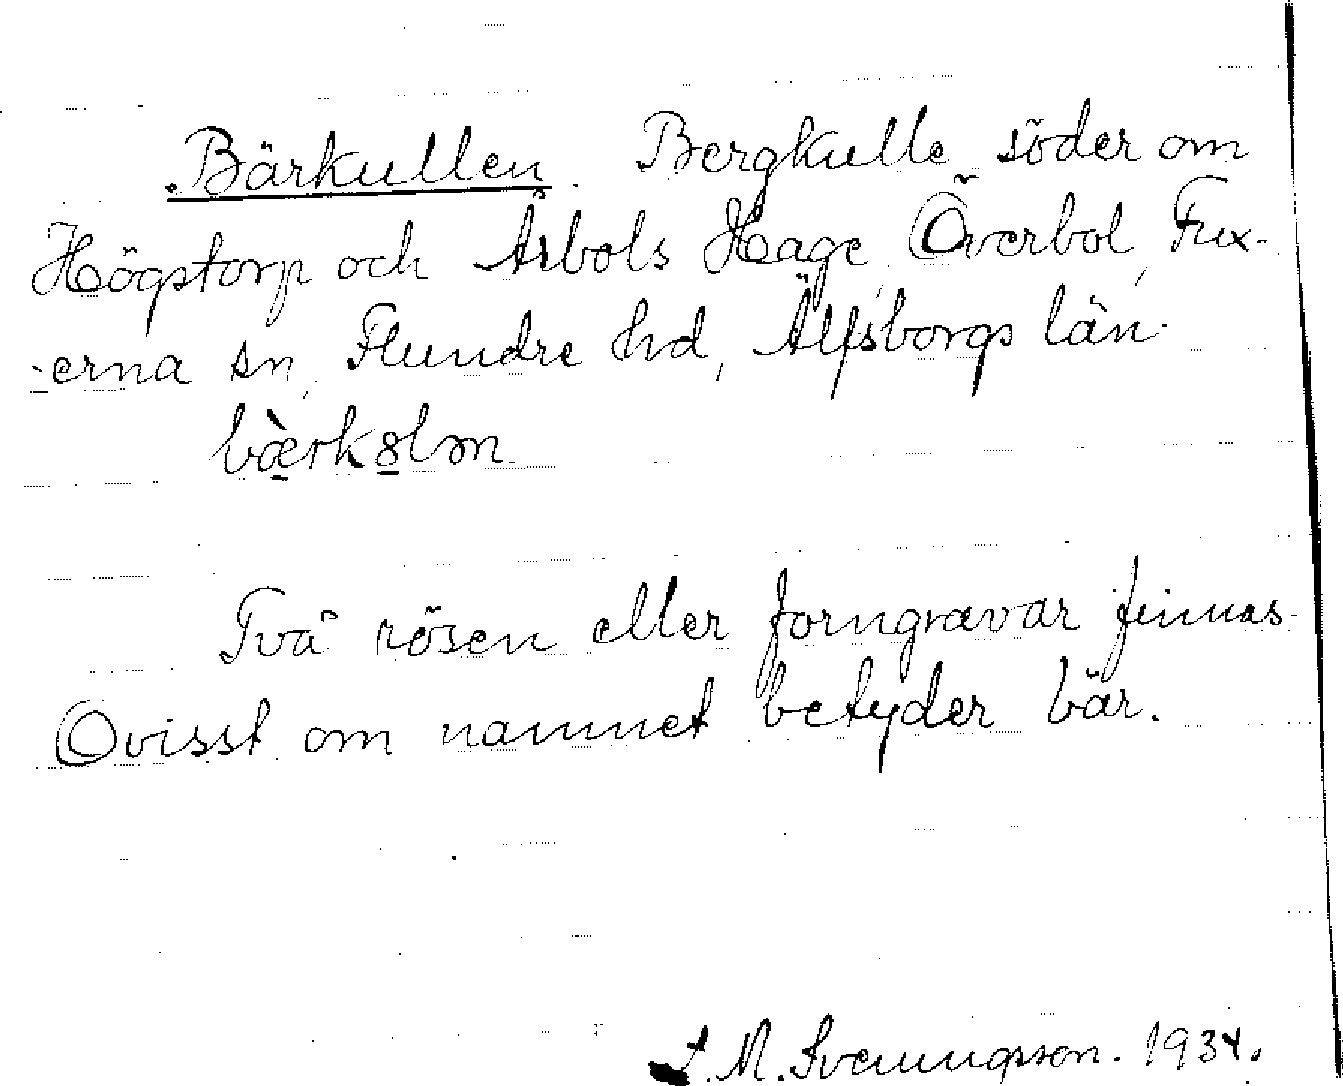 Bärkullen. Bergkulle söder om
Högstorp och Åsbols Hage, Överbol, Fux-
-erna sn, Flundre hd, Älfsborgs län.
bæ̀rkȣlən
Två rösen eller forngravar finnas.
Ovisst om namnet betyder bär.
Svenungsson. 1934.